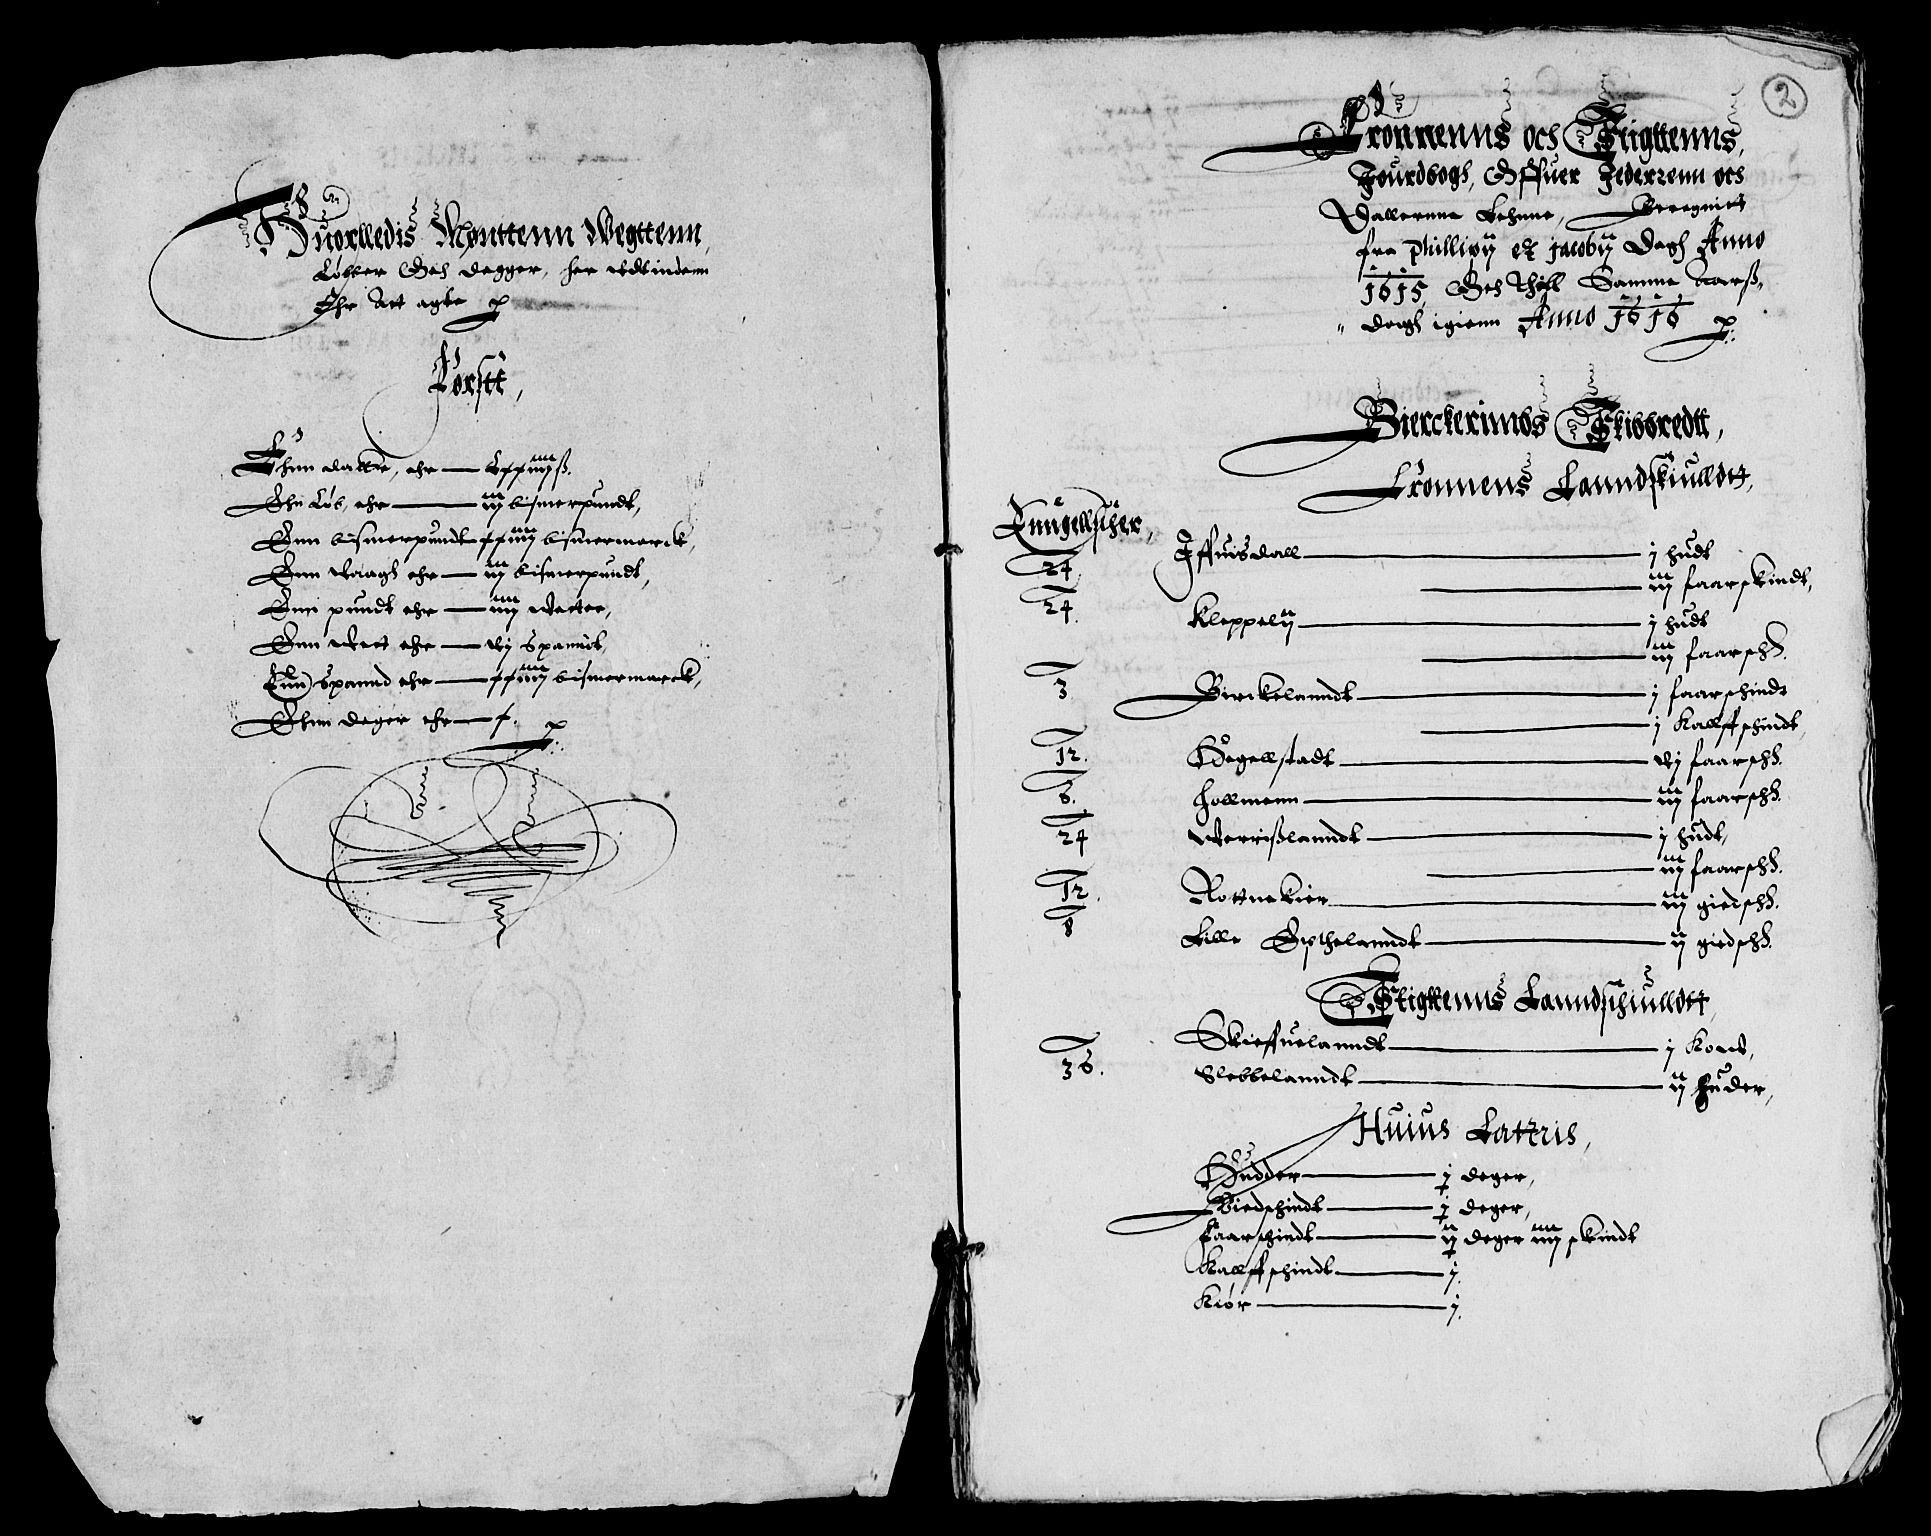 Huorlledis Mønttenn Wegttenn,
Løbber Och degger, her vdtinden
Ehr Att agte p
Førstt,
Ehnn daller, ehr — iiij ß.
Ehn Løb, ehr — iij bismerpundt,
Enn bismerpundt xxiiij bismermarck,
Enn waagh ehr — iij bismerpundt,
Enn pundt ehr — iiij wetter,
Enn wett ehr — vj Spanndt,
Enn Spannd ehr — xxiiij bismermarck,
Ehnn deger ehr — x. p
2
Cronnenns och Stigttenns,
Jourdbogh, Offuer Jederenn och
Dallernne Lehnne, Beregnett
fra Phillipij et Jacobij Dagh Anno
1615, Och Thill Samme Aarß,
dagh igienn Anno 1616 p
Bierckerimds Skibbredtt,
Cronnens Lanndskiulldtt,
Enngellscher,
24 Iffuisdall — j hudt
— iij faarskindt,
24. Kleppelij — j hudt
— iij faarschh.
3 Birckelanndt — j faarschindt
— j Kallffschindt,
12. Hegellstadt — vj faarschh.
6. Hollmenn — iij faarschh.
24 Werrißlanndt — j hudt,
— iij faarschh.
12. Rottnekier — iij giedschh.
8 Lille Epthelanndt — ij giedschh.
Stigttenns Lanndschiulldtt,
Skieffuelanndt — j Koes,
36. Slebbelanndt — ij huder,
Huius Latteris,
Hudder — j deger,
Giedschindt — j deger,
Faarschindt — ij deger iiij skindt
Kallffschindt — j.
Kiør — j.